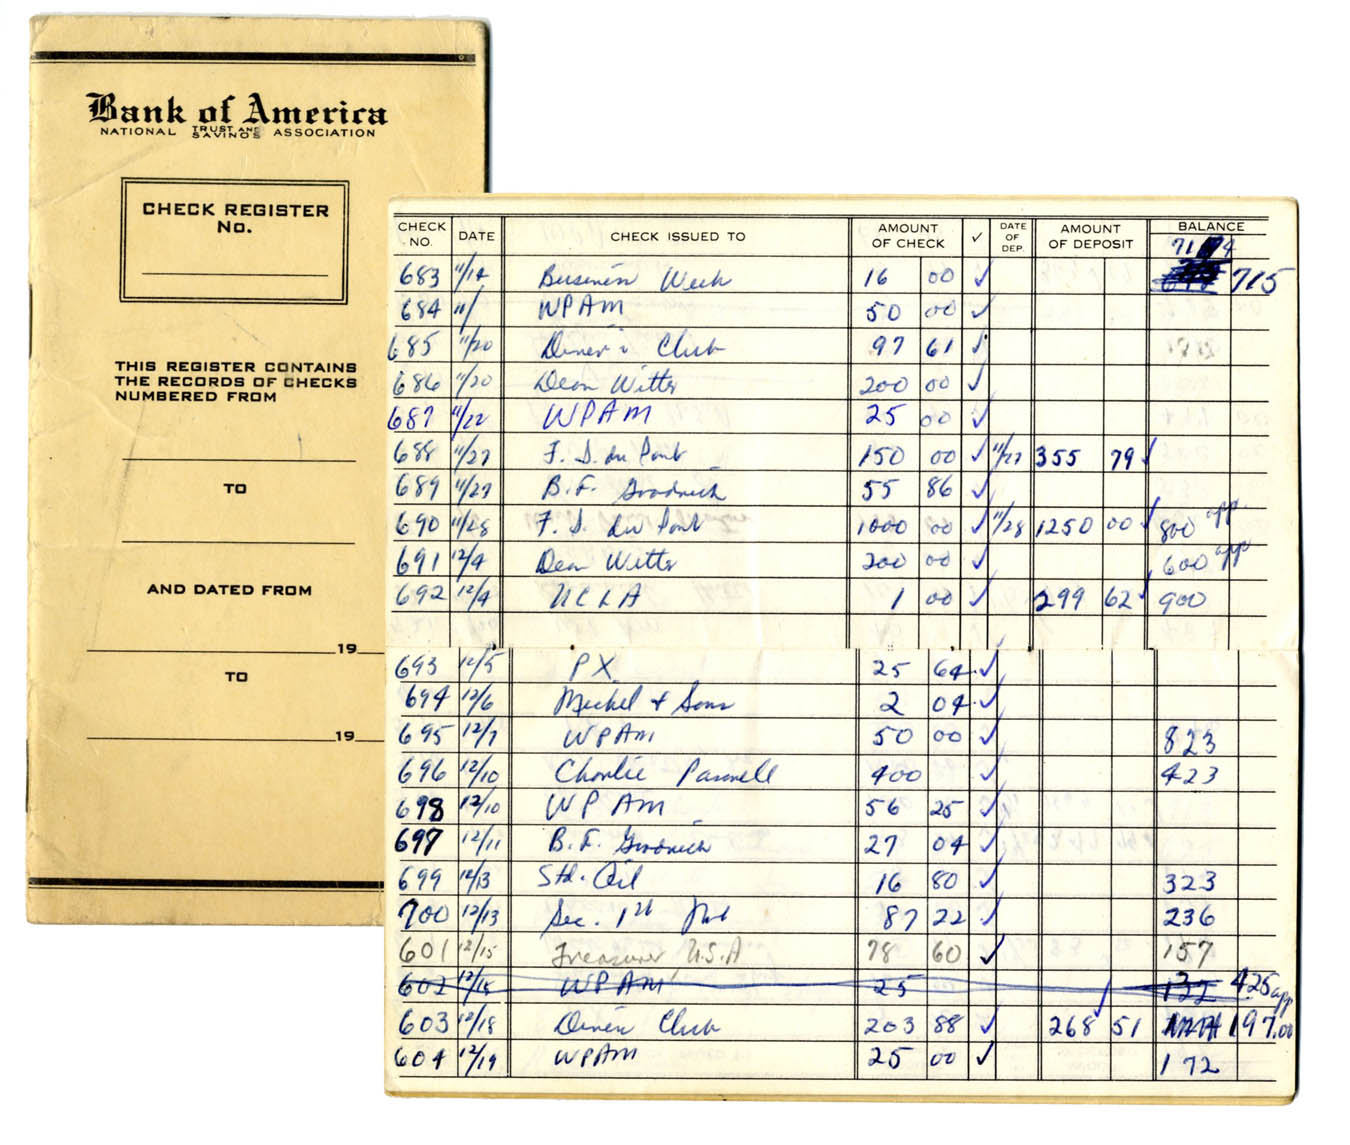 Bank of America
NATIONAL TRUST AND SAVINGS ASSOCIATION
CHECK REGISTER
No.
THIS REGISTER CONTAINS
THE RECORDS OF CHECKS
NUMBERED FROM
TO
AND DATED FROM
19
TO
19
CHECK NO. DATE CHECK ISSUED TO AMOUNT OF CHECK ✓ DATE OF DEP. AMOUNT OF DEPOSIT BALANCE
683 11/14 Business Week 16 00 ✓ 715
684 11/ WPAM 50 00 ✓
685 11/20 Diner's Club 97 61 ✓
686 11/20 Dean Witter 200 00 ✓
687 11/22 WPAM 25 00 ✓
688 11/27 F. I. du Pont 150 00 ✓ 11/27 355 79 ✓
689 11/27 B.F. Goodrich 55 86 ✓
690 11/28 F. I. du Pont 1000 00 ✓ 11/28 1250 00 ✓ 800 app.
691 12/4 Dean Witter 200 00 ✓ 600 app
692 12/4 UCLA 1 00 ✓ 299 62 ✓ 900
693 12/5 PX 25 64 ✓
694 12/6 Michel + Sons 2 04 ✓
695 12/7 WPAM 50 00 ✓ 823
696 12/10 Charlie Pasarell 400 ✓ 423
698 12/10 WPAM 56 25 ✓
697 12/11 B.F. Goodrich 27 04 ✓
699 12/13 Std. Oil 16 80 ✓ 323
700 12/13 Sec. 1st Natl 87 22 ✓ 236
601 12/15 Treasurer U.S.A 78 60 ✓ 157
602 12/15 WPAM 25 132 425 app
603 12/18 Diners Club 203 88 ✓ 268 51 ✓ 197.00
604 12/19 WPAM 25 00 ✓ 172